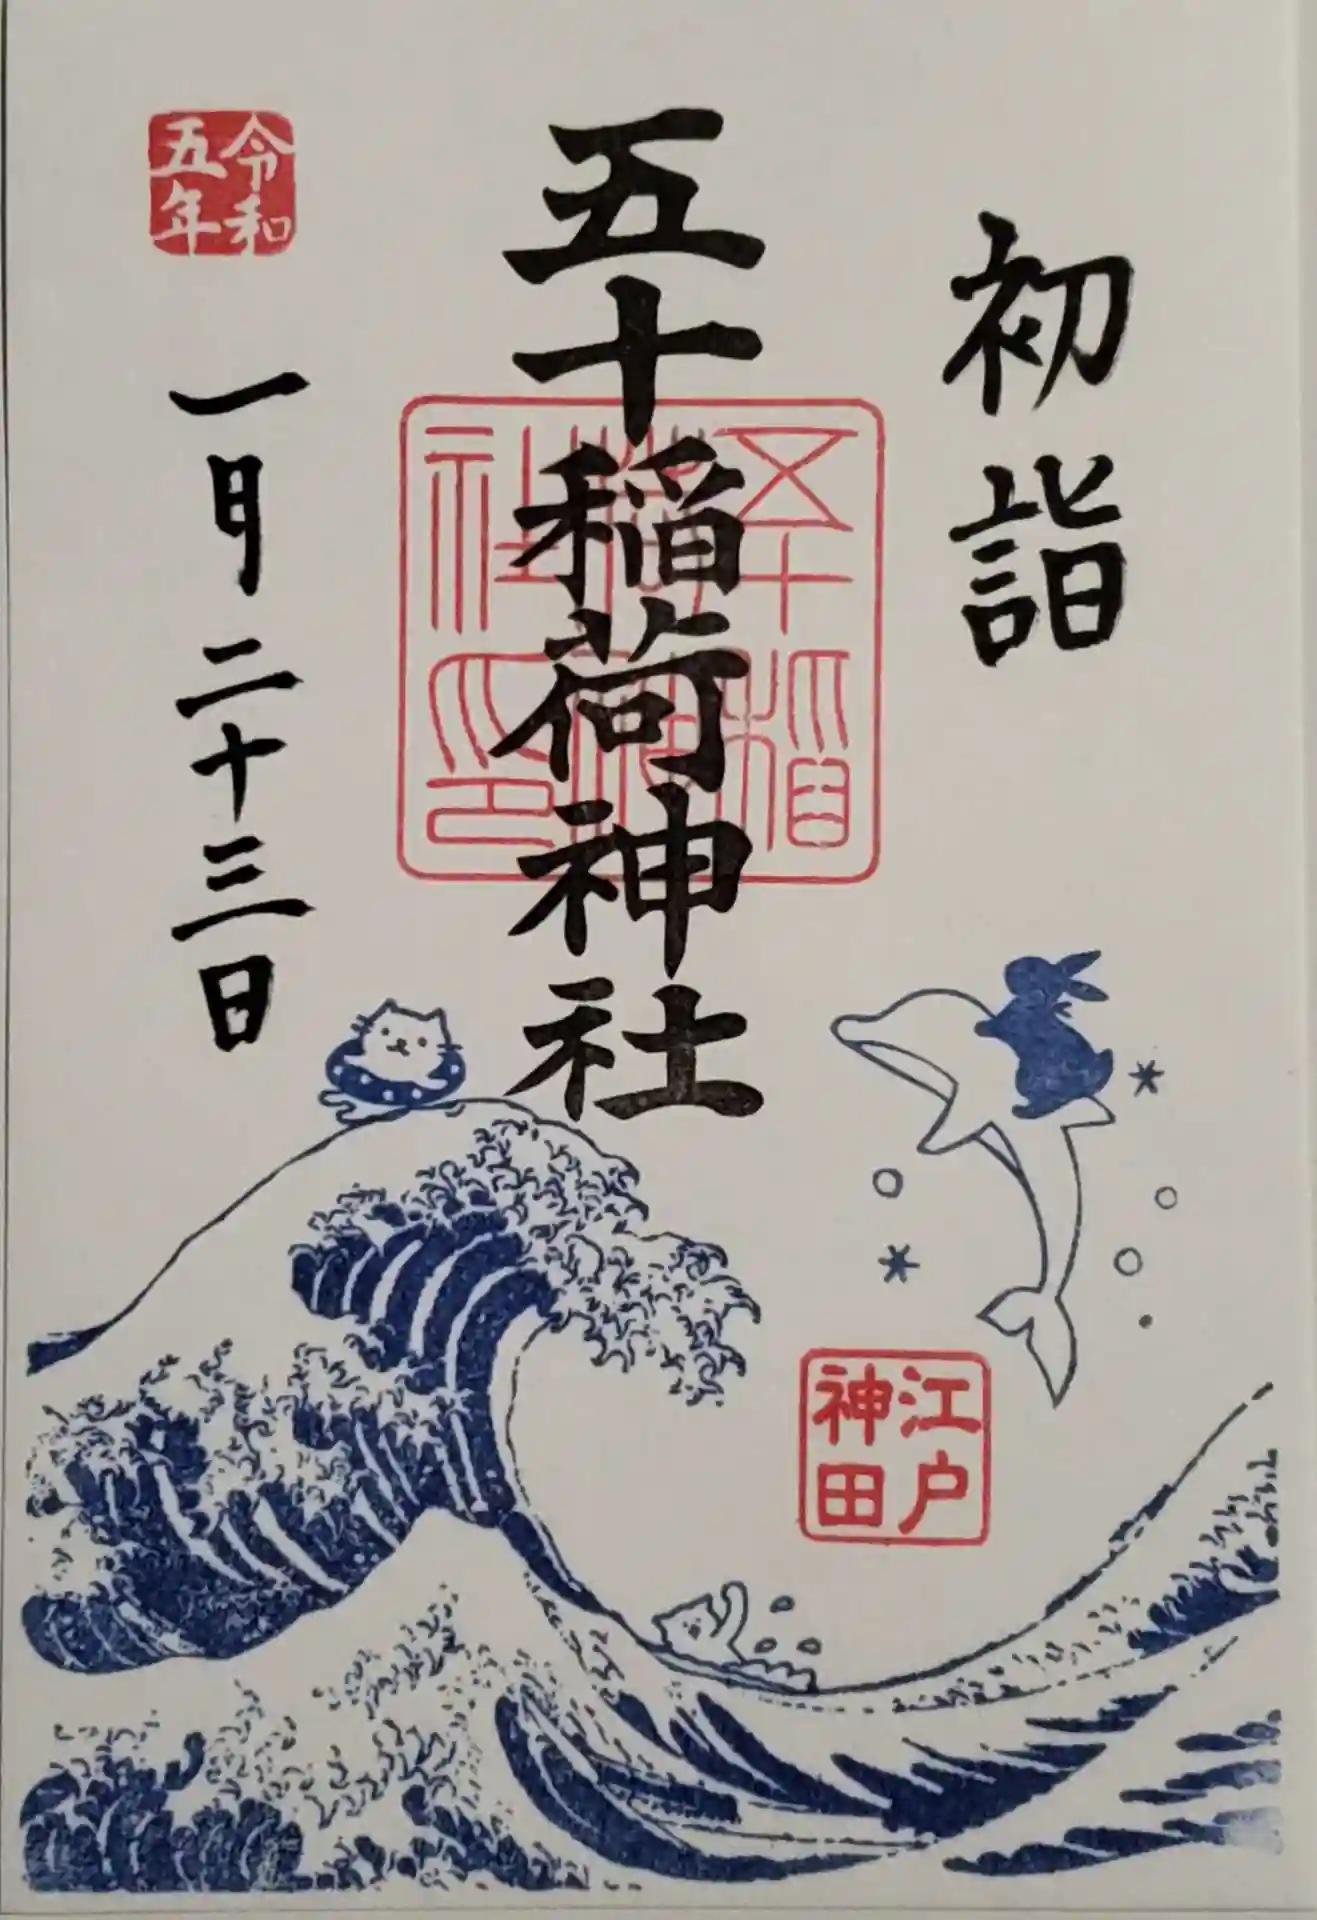 初詣
五十稲荷神社
五十稲荷神社印
令和
五年
一月二十三日
江戸
神田